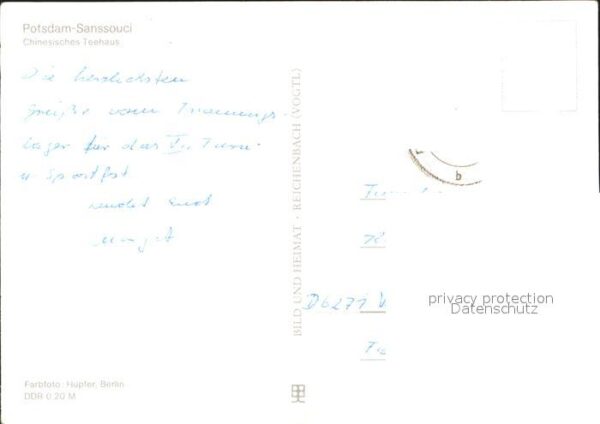 Potsdam-Sanssouci
Chinesisches Teehaus
Die herzlichsten
Grüße vom Trainings-
lager für das VI. Turn-
u. Sportfest
sendet Euch
BILD UND HEIMAT · REICHENBACH (VOGTL)
b
D 6271
privacy protection
Datenschutz
Farbfoto: Hupfer, Berlin
DDR 0,20 M